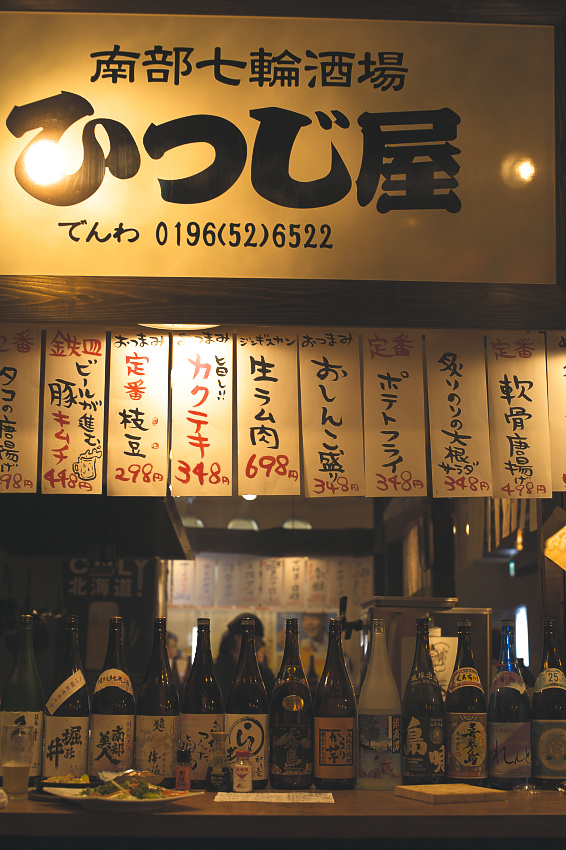 南部七輪酒場
ひつじ屋
でんわ 0196(52)6522
定番
タコの唐揚げ
鉄皿
ビールが進む。
豚キムチ
448円
おつまみ
定番
枝豆
298円
おつまみ
旨し!!
カクテキ
348円
ジンギスカン
生ラム肉
698円
おつまみ
おしんこ盛り
348円
定番
ポテトフライ
348円
炙りのりの大根サラダ
348円
定番
軟骨唐揚げ
498円
北海道!
堀の井
南部美人
島唄
喜界島
れんと
25